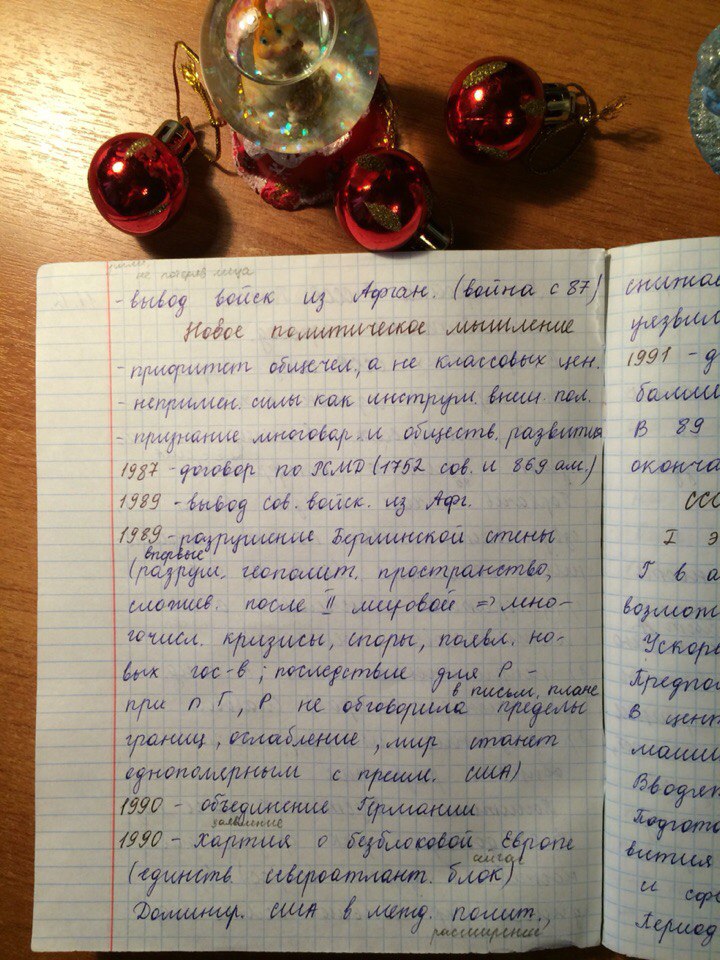 не потеряв лица
- вывод войск из Афган. (война с 87)
Новое политическое мышление
- приоритет общечел., а не классовых цен.
- непримен. силы как инструм. внеш. пол.
- признание многовар. и обществ. развития
1987 - договор по РСМД (1752 сов. и 869 ам.)
1989 - вывод сов. войск. из Афг.
1989 - разрушение Берлинской стены
впервые
(разруш. геополит. пространство,
сложив. после II мировой => мно-
гочисл. кризисы, споры, появл. но-
вых гос-в; последствие для Р -
в письм. плане
при п Г, Р не обговорила пределы
границ, ослабление, мир станет
однополярным с преим. США)
1990 - объединение Германии
заявление
1990 - Хартия о безблоковой Европе
сейчас
(единств. североатлант. блок)
Доминир. США в межд. полит.,
расширение
снижае
уязвим
1991 - д
балли
В 89
оконча
ССС
I э
Г в а
возмож
Ускоре
Предпол
В цент
маши
Вводят
Подгото
вития
и сфе
Период